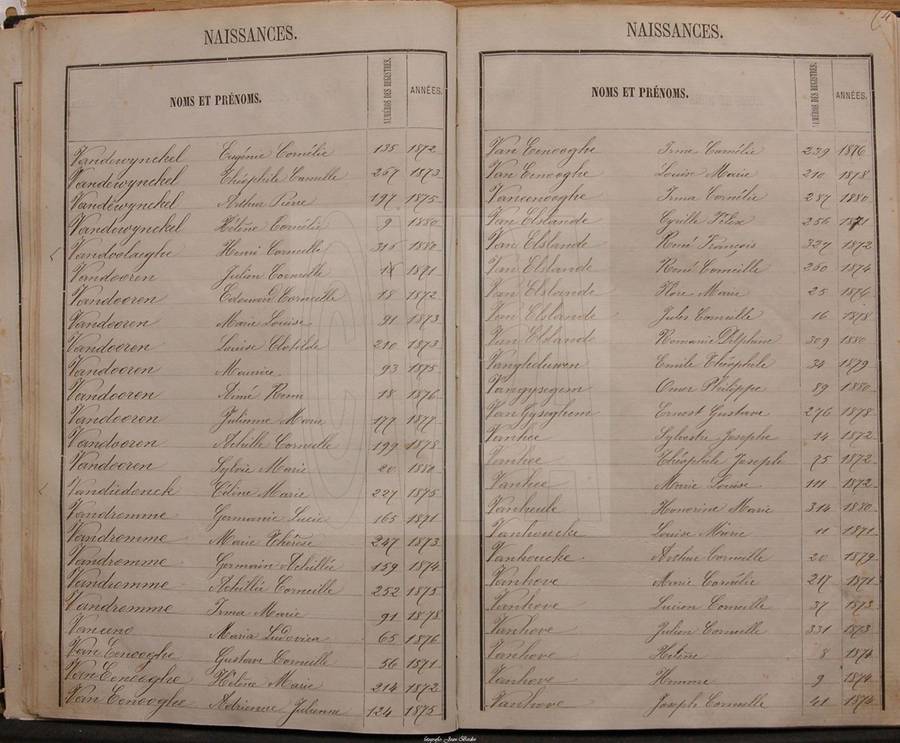 NAISSANCES.
NOMS ET PRÉNOMS. NUMÉROS DES REGISTRES. ANNÉES.
Vandewynckel Eugénie Cornélie 135 1872
Vandewynckel Théophile Camille 257 1873
Vandewynckel Arthur Pierre 197 1875
Vandewynckel Hélène Cornélie 9 1880
Vandoolaeghe Henri Corneille 316 1880
Vandooren Julien Corneille 1871
Vandooren Edouard Corneille 18 1872
Vandooren Marie Louise 91 1873
Vandooren Louise Clotilde 210 1873
Vandooren Maurice 93 1875
Vandooren Aimé Remi 18 1876
Vandooren Julienne Marie 177 1878
Vandooren Achille Corneille 199 1878
Vandooren Sylvie Marie 20 1880
Vandriedonck Céline Marie 227 1875
Vandromme Germanie Lucie 165 1871
Vandromme Marie Thérèse 247 1873
Vandromme Germain Achille 159 1874
Vandromme Achille Corneille 252 1875
Vandromme Irma Marie 91 1878
Vaneeno Maria Ludovica 65 1876
Van Eenooghe Gustave Corneille 56 1871
Van Eenooghe Hélène Marie 214 1872
Van Eenooghe Adrienne Julienne 124 1875
NAISSANCES.
NOMS ET PRÉNOMS. NUMÉROS DES REGISTRES. ANNÉES.
Van Eenooghe Irma Camélie 239 1876
Van Eenooghe Louise Marie 210 1878
Vaneenooghe Irma Cornélie 287 1880
Van Elslande Cyrille Félix 256 1871
Van Elslande René François 327 1872
Van Elslande René Corneille 250 1874
Van Elslande Flore Marie 25 1876
Van Elslande Jules Corneille 16 1878
Van Elslande Romanie Delphine 309 1880
Vangheluwen Emile Théophile 34 1879
Vangysegem Omer Philippe 89 1880
Van Gyseghem Ernest Gustave 276 1878
Vanhee Sylvestre Josephe 14 1872
Vanhee Théophile Joseph 75 1872
Vanhee Marie Louise 111 1872
Vanheule Honorine Marie 314 1880
Vanhoucke Louise Marie 11 1871
Vanhoucke Arthur Corneille 20 1879
Vanhove Marie Cornélie 217 1871
Vanhove Lucien Corneille 37 1873
Vanhove Julien Corneille 331 1873
Vanhove Hélène 8 1874
Vanhove Honoré 9 1874
Vanhove Joseph Corneille 41 1874